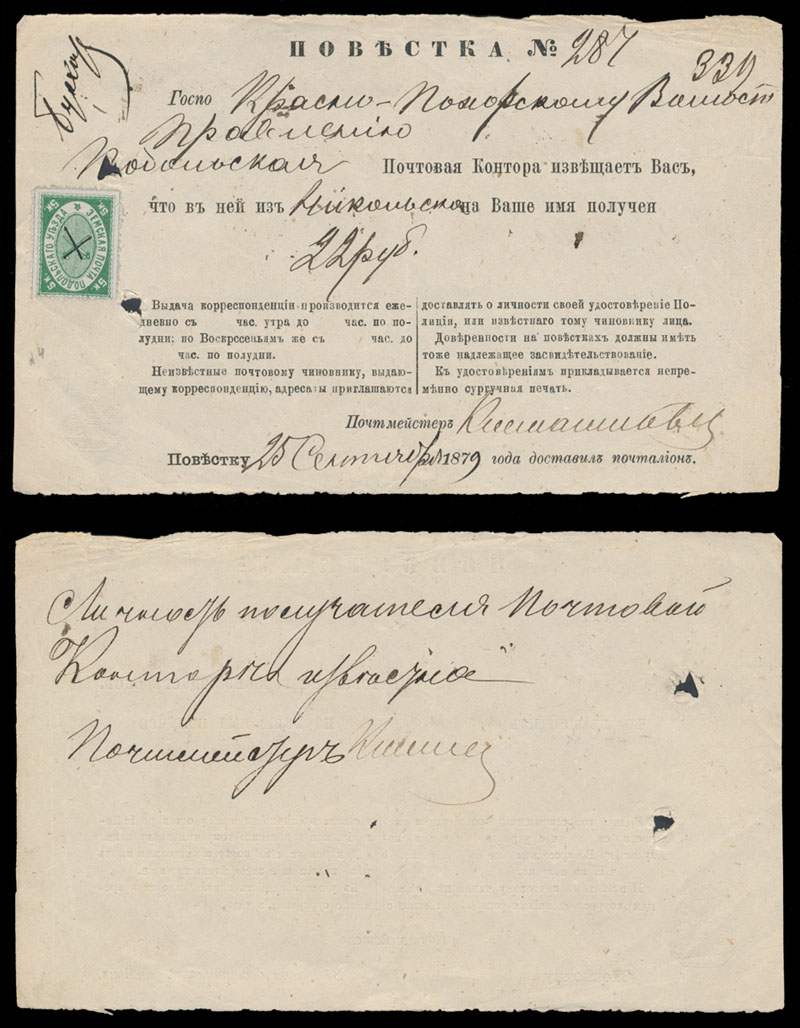 ПОВѢСТКА № 287
339
Госпо Красно-Пахорскому Волост
Правленію
Подольская Почтовая Контора извѣщаетъ Васъ,
что въ ней изъ Никольска на Ваше имя получен
22 руб.
5 К.
5 К.
5 К.
5 К.
ЗЕМСКАЯ ПОЧТА ПОДОЛЬСКАГО УѢЗДА
Выдача корреспонденціи производится еже-
дневно съ час. утра до час. по по-
лудни; по Воскрссеньямъ же съ час. до
час. по полудни.
Неизвѣстные почтовому чиновнику, выдаю-
щему корреспонденцію, адресаты приглашаются
доставлять о личности своей удостовѣреніе По-
лиціи, или извѣстнаго тому чиновнику лица.
Довѣренности на повѣсткахъ должны имѣть
тоже надлежащее засвидѣтельствованіе.
Къ удостовѣреніямъ прикладывается непре-
мѣнно сургучная печать.
Почтмейстеръ
Повѣстку 25 Сентября 1879 года доставилъ почталіонъ.
Личность получателя Почтовой
Конторѣ извѣстна
Почтмейстеръ